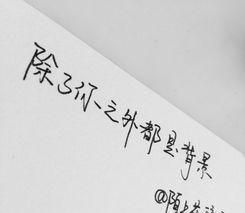 除了你之外都是背景
@陌上